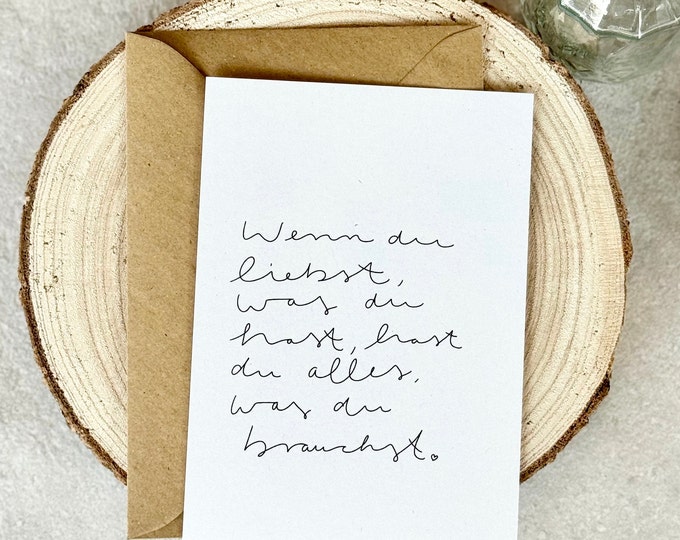 Wenn du
liebst,
was du
hast, hast
du alles,
was du
brauchst.